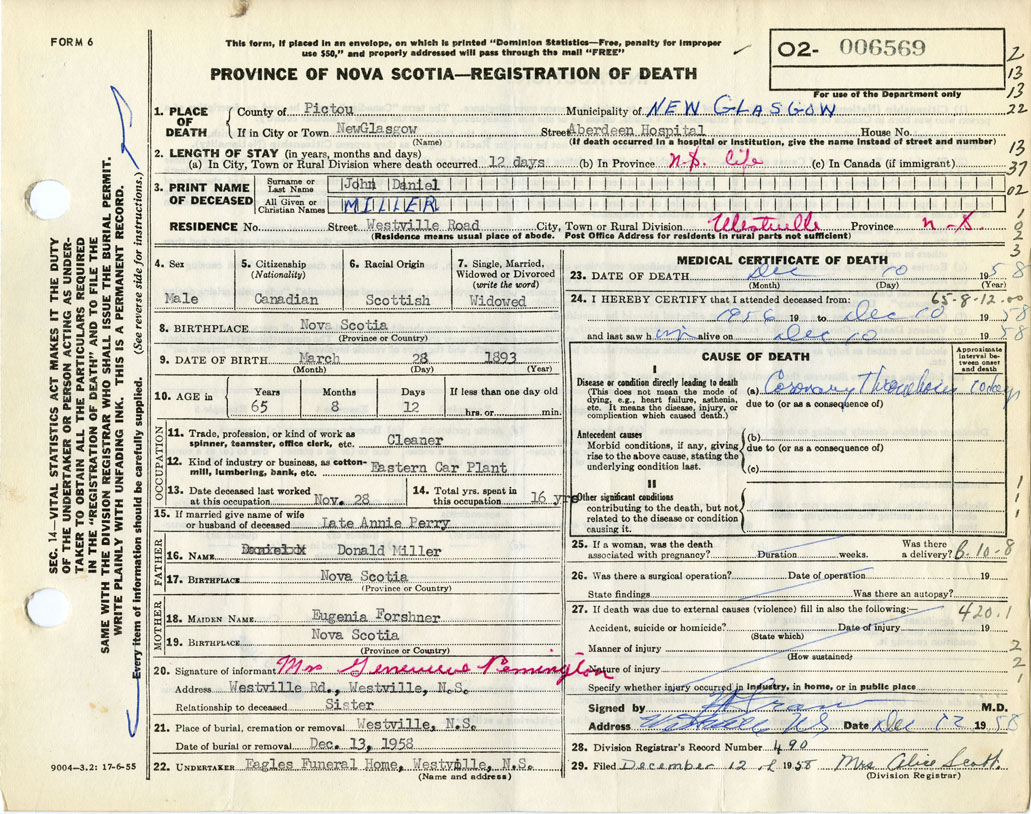 FORM 6
This form, if placed in an envelope, on which is printed "Dominion Statistics—Free, penalty for improper
use $50," and properly addressed will pass through the mail "FREE"
O2- 006569
For use of the Department only
PROVINCE OF NOVA SCOTIA—REGISTRATION OF DEATH
2
13
13
22
13
37
02
1
0
2
3
SEC. 14—VITAL STATISTICS ACT MAKES IT THE DUTY
OF THE UNDERTAKER OR PERSON ACTING AS UNDER-
TAKER TO OBTAIN ALL THE PARTICULARS REQUIRED
IN THE "REGISTRATION OF DEATH" AND TO FILE THE
SAME WITH THE DIVISION REGISTRAR WHO SHALL ISSUE THE BURIAL PERMIT.
WRITE PLAINLY WITH UNFADING INK. THIS IS A PERMANENT RECORD.
Every item of information should be carefully supplied. (See reverse side for instructions.)
1. PLACE OF DEATH
County of Pictou Municipality of NEW GLASGOW
If in City or Town NewGlasgow Street Aberdeen Hospital House No.
(Name) (If death occurred in a hospital or institution, give the name instead of street and number)
2. LENGTH OF STAY (in years, months and days)
(a) In City, Town or Rural Division where death occurred 12 days (b) In Province N.S. life (c) In Canada (if immigrant)
3. PRINT NAME OF DECEASED
Surname or Last Name John Daniel
All Given or Christian Names MILLER
RESIDENCE No. Street Westville Road City, Town or Rural Division Westville Province N-S.
(Residence means usual place of abode. Post Office Address for residents in rural parts not sufficient)
4. Sex Male
5. Citizenship (Nationality) Canadian
6. Racial Origin Scottish
7. Single, Married, Widowed or Divorced (write the word) Widowed
8. BIRTHPLACE Nova Scotia
(Province or Country)
9. DATE OF BIRTH March 28 1893
(Month) (Day) (Year)
10. AGE in Years 65 Months 8 Days 12 If less than one day hrs. or min.
OCCUPATION
11. Trade, profession, or kind of work as spinner, teamster, office clerk, etc. Cleaner
12. Kind of industry or business, as cotton-mill, lumbering, bank, etc. Eastern Car Plant
13. Date deceased last worked at this occupation Nov. 28
14. Total yrs. spent in this occupation 16 yrs
15. If married give name of wife or husband of deceased Late Annie Perry
FATHER
16. NAME Donald Miller
17. BIRTHPLACE Nova Scotia
(Province or Country)
MOTHER
18. MAIDEN NAME Eugenia Forshner
19. BIRTHPLACE Nova Scotia
(Province or Country)
20. Signature of informant Mrs Genevieve Pemington
Address Westville Rd., Westville, N.S.
Relationship to deceased Sister
21. Place of burial, cremation or removal Westville, N.S.
Date of burial or removal Dec. 13, 1958
22. UNDERTAKER Eagles Funeral Home, Westville, N.S.
(Name and address)
9004—3.2: 17-6-55
MEDICAL CERTIFICATE OF DEATH
23. DATE OF DEATH Dec 10 1958
(Month) (Day) (Year)
24. I HEREBY CERTIFY that I attended deceased from: 65-8-12.00
1956 19 to Dec 10 1958
and last saw him alive on Dec 10 1958
CAUSE OF DEATH
Approximate interval between onset and death
I
Disease or condition directly leading to death
(This does not mean the mode of dying, e.g., heart failure, asthenia, etc. It means the disease, injury, or complication which caused death.)
(a) Coronary Thrombosis 10 days
due to (or as a consequence of)
Antecedent causes
Morbid conditions, if any, giving rise to the above cause, stating the underlying condition last.
(b)
due to (or as a consequence of)
(c)
II
Other significant conditions
contributing to the death, but not related to the disease or condition causing it.
1
1
1
25. If a woman, was the death associated with pregnancy? Duration weeks. Was there a delivery? 6-10-8
26. Was there a surgical operation? Date of operation 19
State findings Was there an autopsy?
27. If death was due to external causes (violence) fill in also the following:— 420.1
Accident, suicide or homicide? Date of injury 19
(State which)
Manner of injury 2
(How sustained)
Nature of injury 2
1
Specify whether injury occurred in industry, in home, or in public place
Signed by M.D.
Address Westville NS Date Dec 12 1958
28. Division Registrar's Record Number 490
29. Filed December 12 1958 Mrs Alice Scott
(Division Registrar)